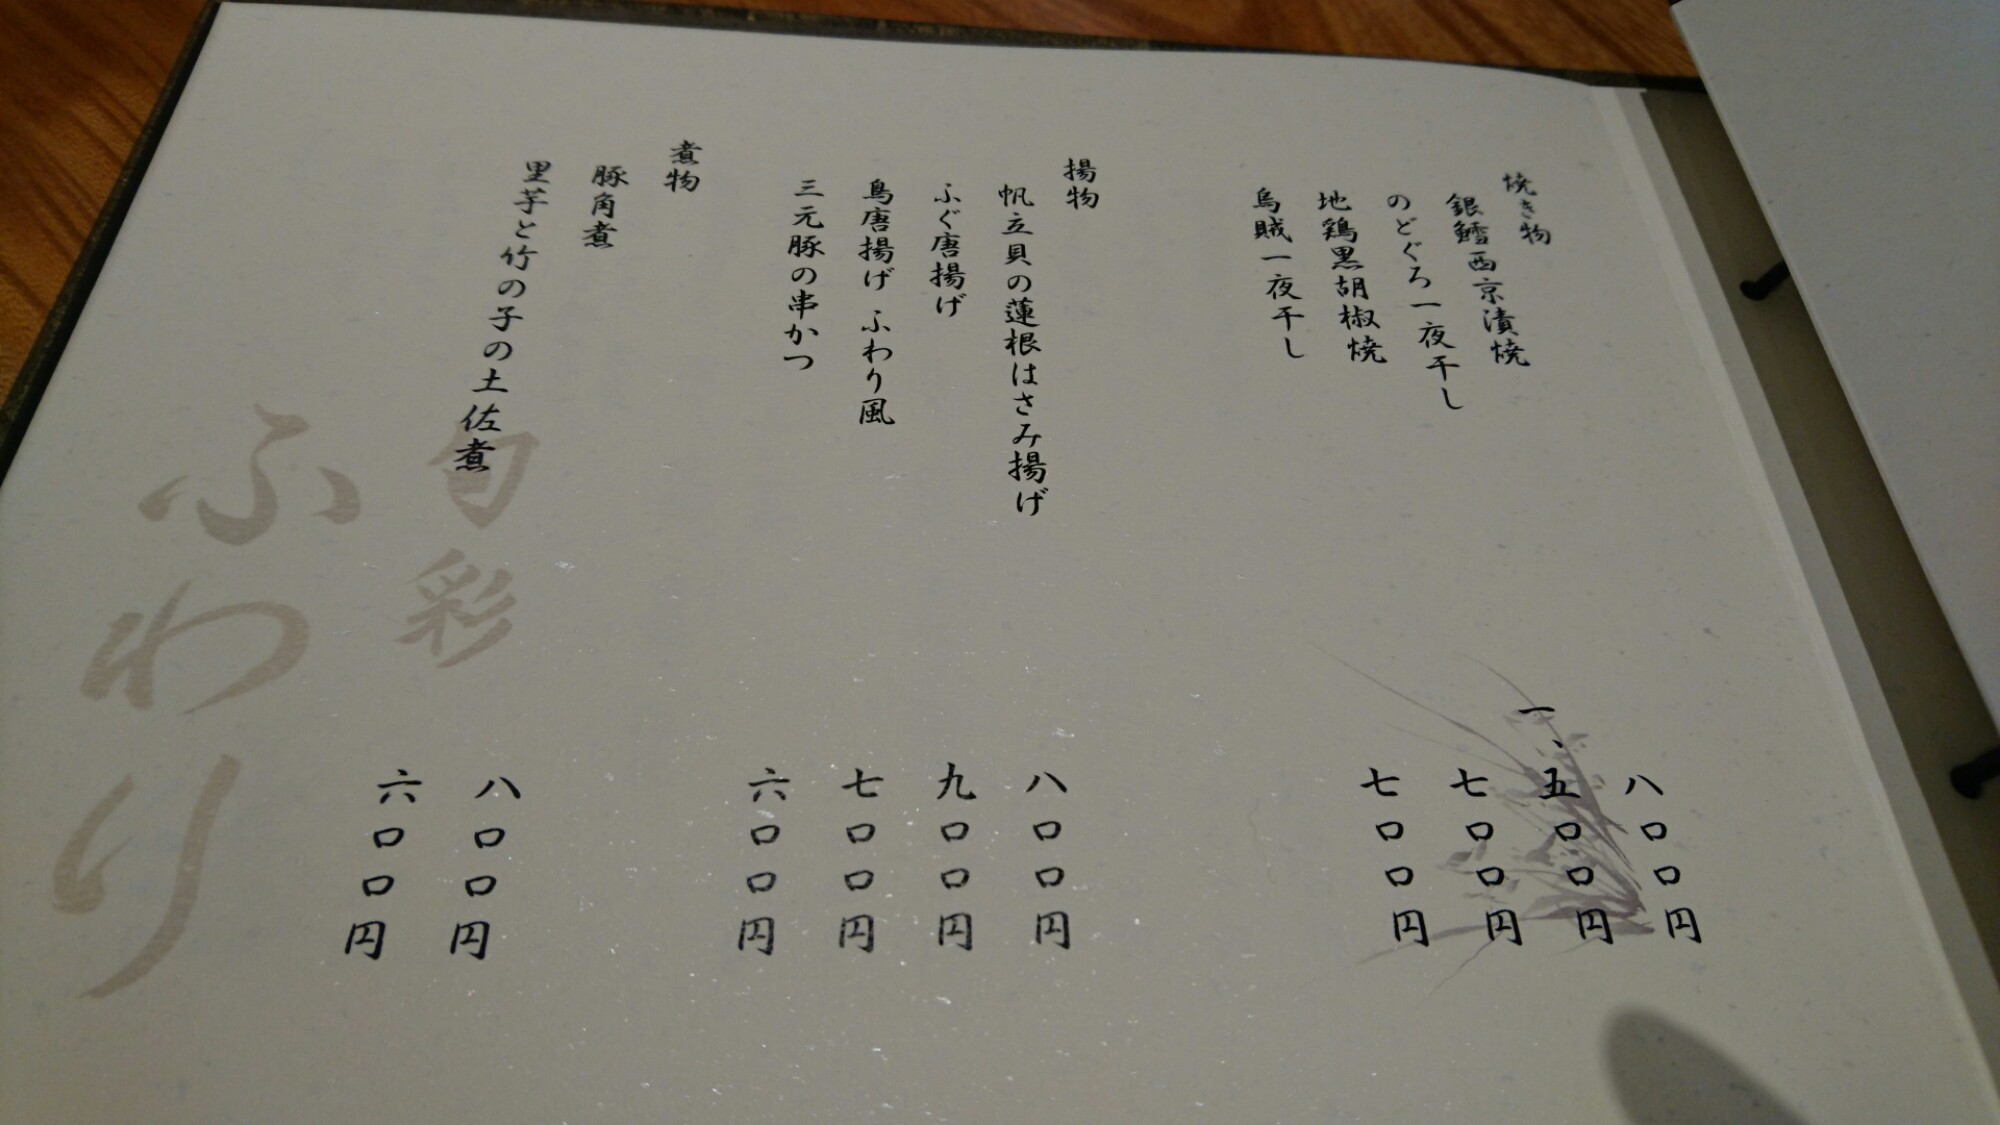 焼き物
銀鱈西京漬焼
のどぐろ一夜干し
地鶏黒胡椒焼
烏賊一夜干し
八〇〇円
一、五〇〇円
七〇〇円
七〇〇円
揚物
帆立貝の蓮根はさみ揚げ
ふぐ唐揚げ
鳥唐揚げ ふわり風
三元豚の串かつ
八〇〇円
九〇〇円
七〇〇円
六〇〇円
煮物
豚角煮
里芋と竹の子の土佐煮
八〇〇円
六〇〇円
旬彩
ふわり